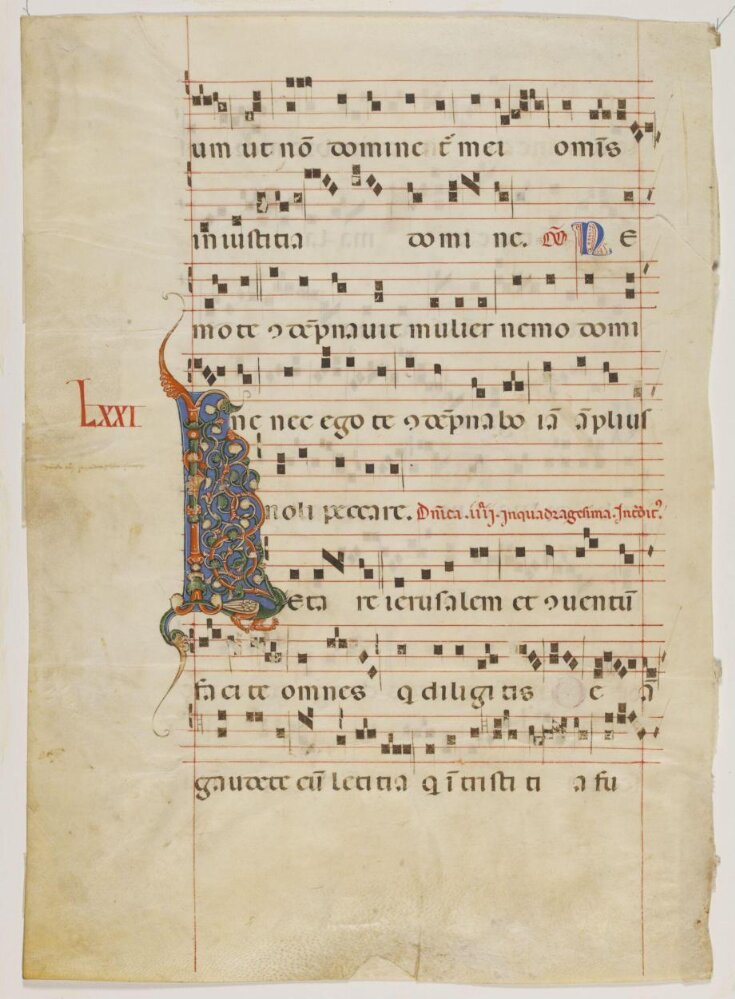 um ut nō domine t̄ mei omīs
iniustitia domine. cō Ne
mo te ꝯdēpnavit mulier nemo domi
LXXI
ne nec ego te ꝯdēpnabo iā āplius
noli peccare. Dn̄ica .iiii. in quadragesima. Introitꝰ
Leta re ierusalem et ꝯuentū
facite omnes q diligitis e ā
gaudete cū letitia q ī tristiti a fu